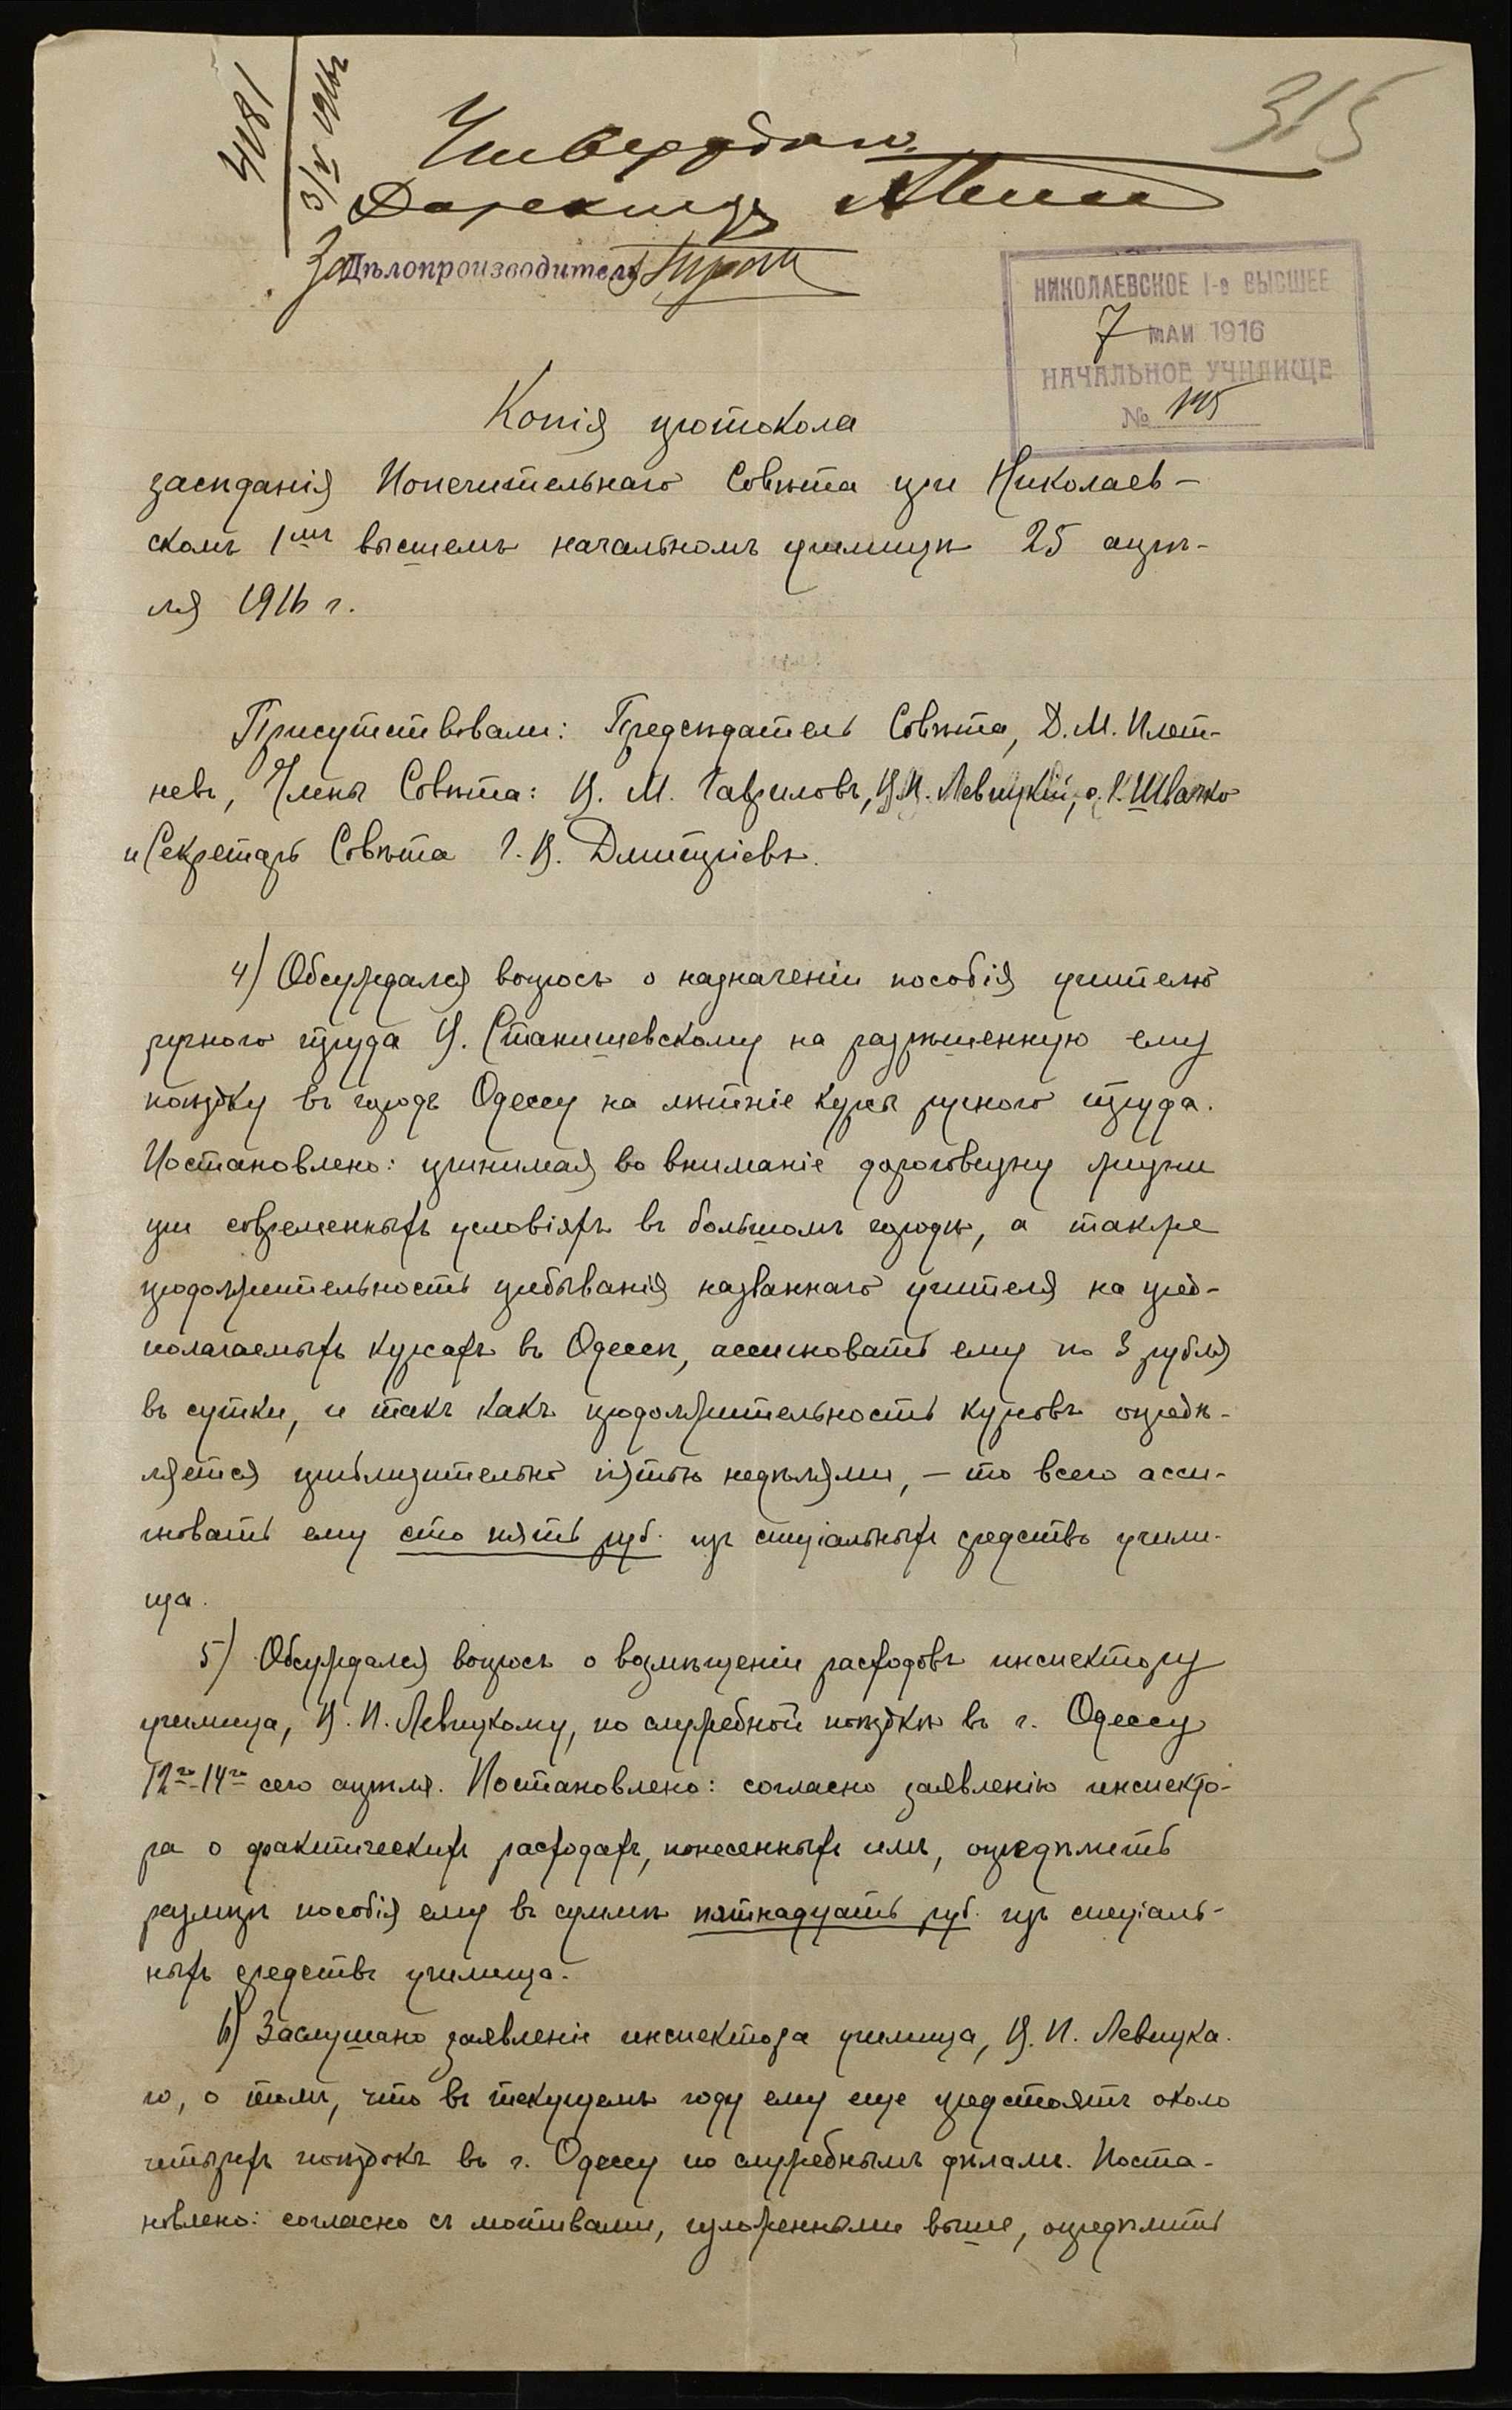 315
4181
3/V 1916 г.
Утверждаю.
Директоръ
За Дѣлопроизводителя
НИКОЛАЕВСКОЕ 1-е ВЫСШЕЕ
7 МАЙ 1916
НАЧАЛЬНОЕ УЧИЛИЩЕ
№ 145
Копія протокола
засѣданія Попечительнаго Совѣта при Николаев-
скомъ 1мъ высшемъ начальномъ училищѣ 25 апрѣ-
ля 1916 г.
Присутствовали: Предсѣдатель Совѣта, Д. М. Плет-
невъ, Члены Совѣта: И. М. Гавриловъ, И. П. Левицкій, Швачко
и Секретарь Совѣта Г. И. Дмитріевъ.
4) Обсуждался вопросъ о назначеніи пособія учителю
ручного труда И. Станишевскому на разрѣшенную ему
поѣздку въ городъ Одессу на лѣтніе курсы ручного труда.
Постановлено: принимая во вниманіе дороговизну жизни
при современныхъ условіяхъ въ большомъ городѣ, а также
продолжительность пребыванія названнаго учителя на пред-
полагаемыхъ курсахъ въ Одессѣ, ассигновать ему по 3 рубля
въ сутки, и такъ какъ продолжительность курсовъ опредѣ-
ляется приблизительно пятью недѣлями, – то всего асси-
гновать ему сто пять руб. изъ спеціальныхъ средствъ учили-
ща.
5) Обсуждался вопросъ о возмѣщеніи расходовъ инспектору
училища, И. П. Левицкому, по служебной поѣздкѣ въ г. Одессу
12го-14го сего апрѣля. Постановлено: согласно заявленію инспекто-
ра о фактическихъ расходахъ, понесенныхъ имъ, опредѣлить
размѣръ пособія ему въ суммѣ пятнадцать руб. изъ спеціаль-
ныхъ средствъ училища.
6) Заслушано заявленіе инспектора училища, И. П. Левицка-
го, о томъ, что въ текущемъ году ему еще предстоятъ около
четырехъ поѣздокъ въ г. Одессу по служебнымъ дѣламъ. Поста-
новлено: согласно съ мотивами, изложенными выше, опредѣлить